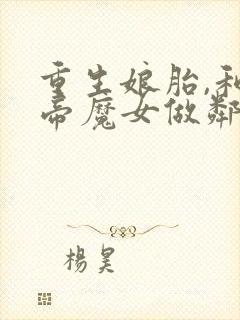 重生娘胎,和
帝魔女做鄰
楊昊